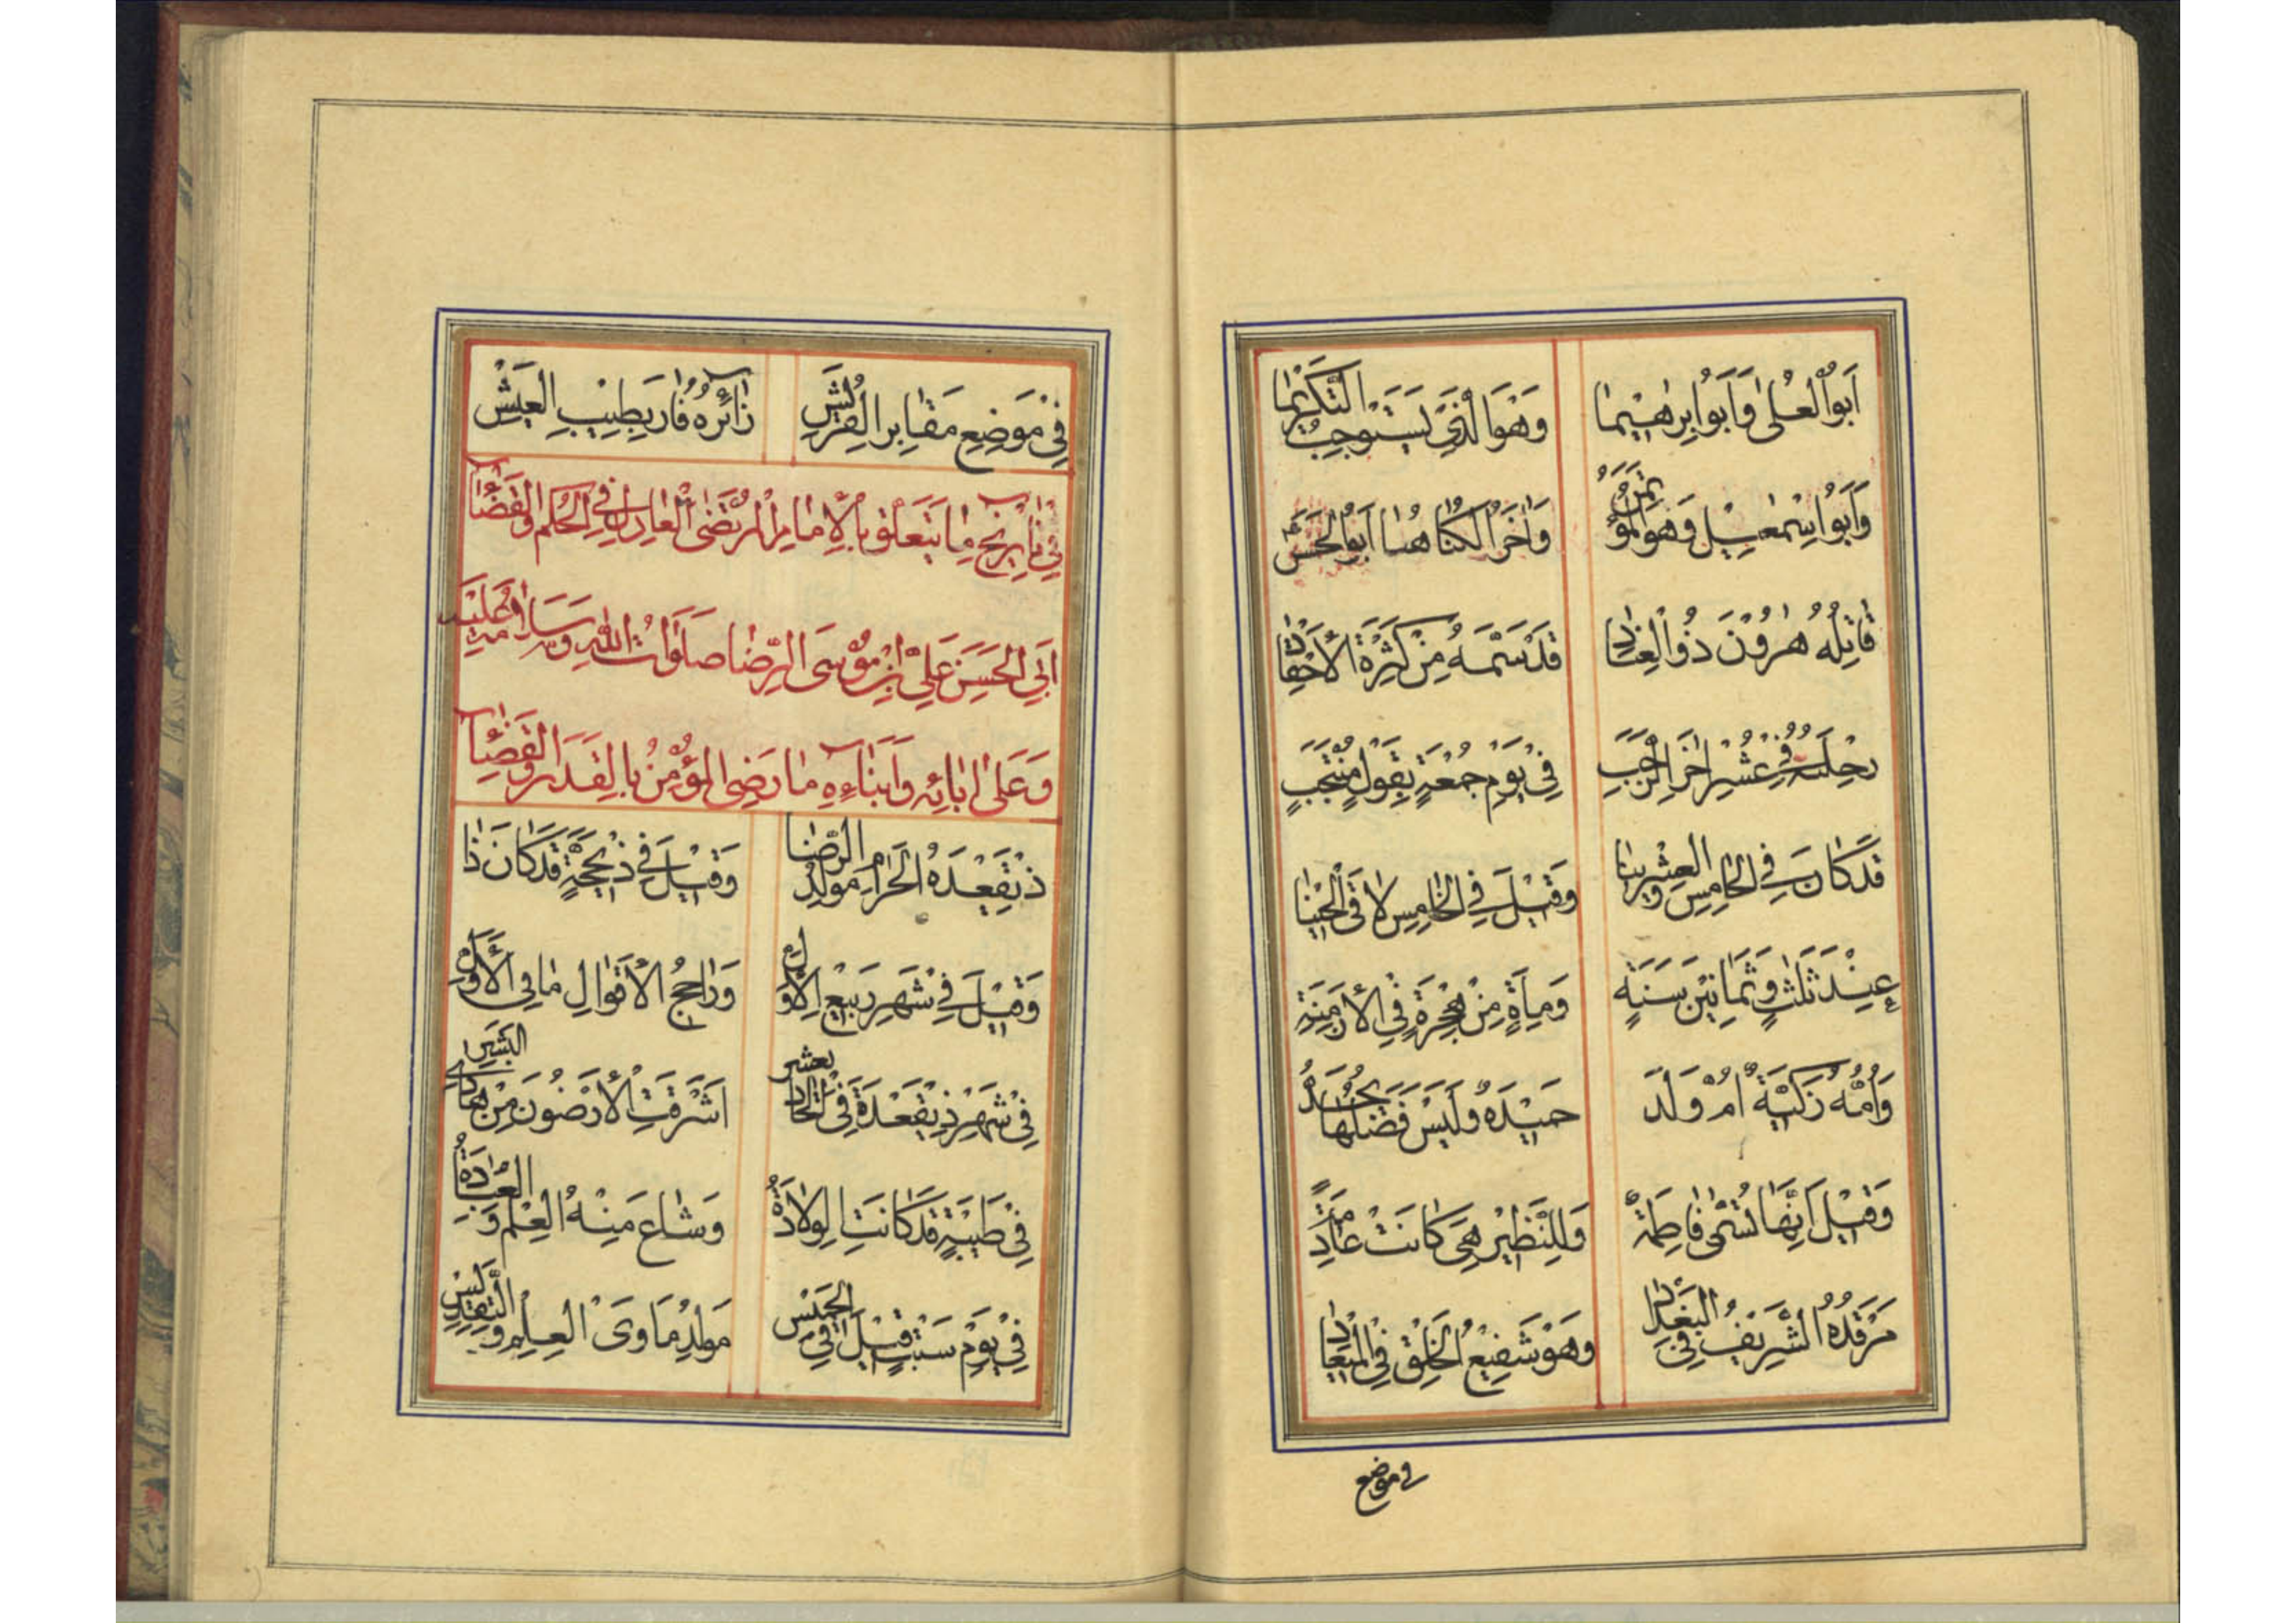 اَبُوا الْعُلیٰ وَاَبُوا اِبْرٰهیٖمٰا وَهُوَ الَّذیٖ یَسْتَوْجِبُ التَّکْرٖیمٰا
وَاَبُوا اِسْمٰعیٖل وَهُوَ الْمُؤْتَمَنُ وَاٰخَرُ الْکُنٰا هُنٰا اَبُو الْحَسَنْ
قٰاتِلُهُ هٰرُوْنَ ذُوا الْعِنٰادِ قَدْ سَمَّهُ مِنْ کَثْرَةِ الْاَحْقٰادِ
رِحْلَتُهُ فِیْ عَشْرِ اٰخَرِ الرَّجَبِ فِیْ یَوْمِ جُمْعَةٍ بِقَوْلٍ مُنْتَجَبٍ
قَدْ کٰانَ فِی الْخٰامِسِ وَالْعِشْرٖینٰا وَقیٖلَ فِی الْخٰامِسِ لٰاقَی الْحیٖنٰا
عِنْدَ ثَلٰثٍ وَثَمٰانیٖنَ سَنَةٍ وَمِاَةٍ مِنْ هِجْرَةٍ فِی الْاَزْمِنَةِ
وَاُمُّهُ زَکِیَّةٌ اُمُّ وَلَدَ حَمیٖدَهُ وَلَیْسَ فَضْلُهٰا یُحَدُّ
وَقیٖلَ اِنَّهٰا تُسَمّٰی فٰاطِمَةً وَلِلنَّظیٖرِ هِیَ کٰانَتْ عٰادِمَةً
مَرْقَدُهُ الشَّریٖفُ فِی الْبَغْدٰادِ وَهُوَ شَفیٖعُ الْخَلْقِ فِی الْمیٖعٰادِ
فی موضع
فِیْ مَوْضِعِ مَقٰابِرِ الْقُرَیْشِ زٰائِرُهُ فٰازَ بِطیٖبِ الْعَیْشِ
فیٖ تٰاریٖخِ مٰا یَتَعَلَّقُ بِالْاِمٰامِ الْمُرْتَضَی الْعٰادِلِ فِی الْحُکْمِ وَالْقَضٰاءِ
اَبِی الْحَسَنِ عَلِیِّ ابْنِ مُوْسَی الرِّضٰا صَلَوٰاتُ اللّٰهِ وَسَلٰامُهُ عَلَیْهِ
وَعَلیٰ اٰبٰائِهِ وَاَبْنٰاءِهِ مٰا رَضِیَ الْمُؤْمِنُ بِالْقَدَرِ وَالْقَضٰاءِ
ذیٖقَعْدَهُ الْحَرٰامِ مَوْلِدُ الرِّضٰا وَقیٖلَ فیٖ ذیٖحِجَّةٍ قَدْ کٰانَ ذٰا
وَقیٖلَ فِیْ شَهْرِ رَبیٖعِ الْاَوَّلِ وَرٰاجِحُ الْاَقْوٰالِ مٰا فِی الْاَوَّلِ
فِیْ شَهْرِ ذیٖقَعْدَةَ فِی الْحٰادیٖعَشَرِ اَشْرَقَتِ الْاَرَضُونَ مِنْ هٰادِی الْبَشَرِ
فِیْ طَیْبَةٍ قَدْ کٰانَتِ الْوِلٰادَةُ وَشٰاعَ مِنْهُ الْعِلْمُ وَالْعِبٰادَةُ
فِیْ یَوْمِ سَبْتٍ قیٖلَ فِی الْخَمیٖسِ مَوْلِدُ مَأْوَی الْعِلْمِ وَالتَّقْدیٖسِ